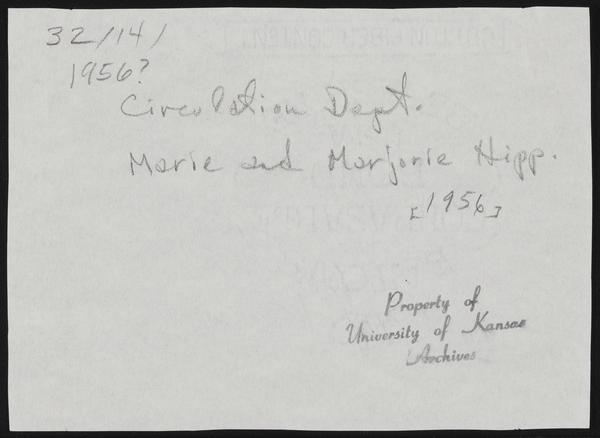 32/14/
1956?
Circulation Dept.
Marie and Marjorie Hipp.
[1956]
Property of
University of Kansas
Archives